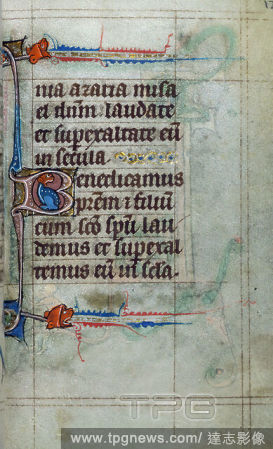 nia aratia nisa
el dnm̄ laudate
et superaltate eū
in secula
Benedicamus
prēm ⁊ filiū
cum scō spū lau
demus et superal
temus eū in scla.
TPG
www.tpgnews.com/ 達志影像